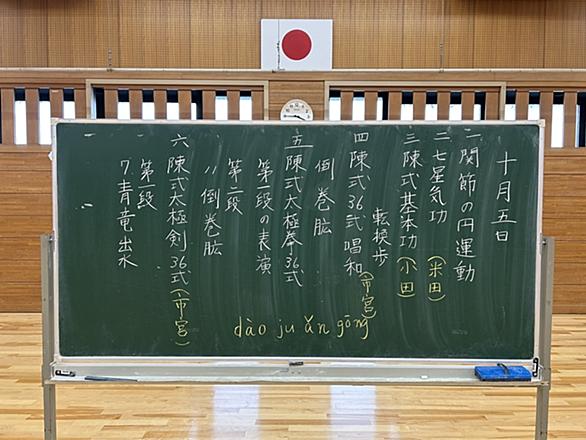 十月五日
一 関節の円運動
二 七星気功 (米田)
三 陳式基本功 (小田)
転換歩
四 陳式36式唱和 (市宮)
倒巻肱
五 陳式太極拳36式
第一段の表演
第二段
11 倒巻肱
六 陳式太極剣36式 (市宮)
第一段
7. 青竜出水
dào juǎn gōng